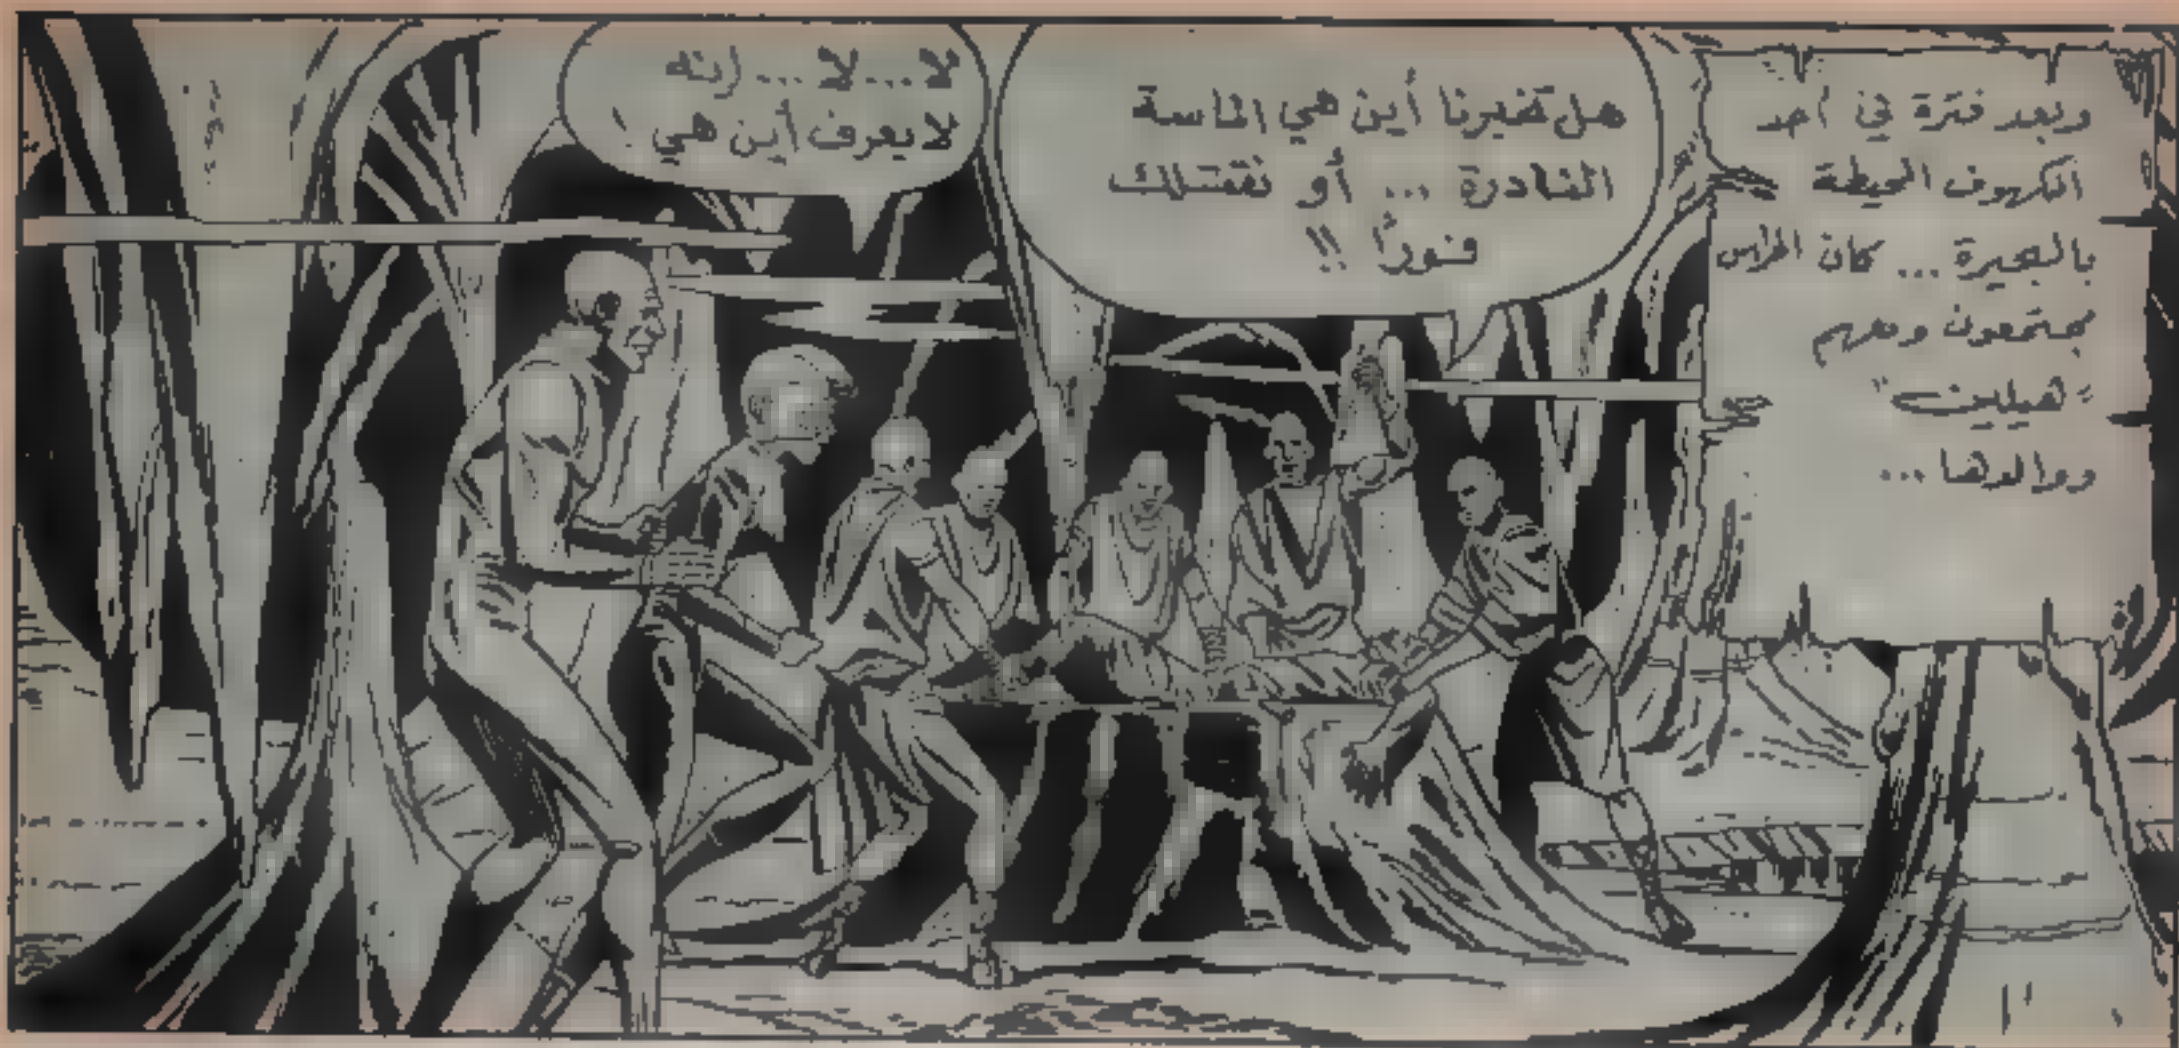 وبعد فترة في أحد
الكهوف المحيطة
بالبحيرة ... كان الحراس
مجتمعون ومعهم
"هيلين"
ووالدها ...
هل تخبرنا أين هي الماسة
النادرة ... أو نقتلك
فورًا !!
لا ... لا ... إنه
لا يعرف أين هي